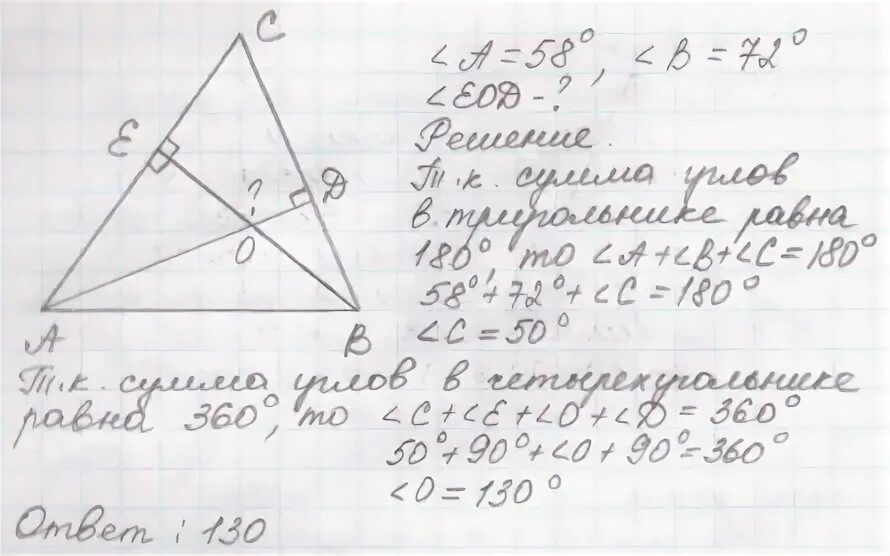 C
E
?
D
O
A
B
∠A = 58°, ∠B = 72°
∠EOD - ?
Решение.
Т.к. сумма углов
в треугольнике равна
180°, то ∠A + ∠B + ∠C = 180°
58° + 72° + ∠C = 180°
∠C = 50°
Т.к. сумма углов в четырехугольнике
равна 360°, то ∠C + ∠E + ∠O + ∠D = 360°
50° + 90° + ∠O + 90° = 360°
∠O = 130°
Ответ : 130